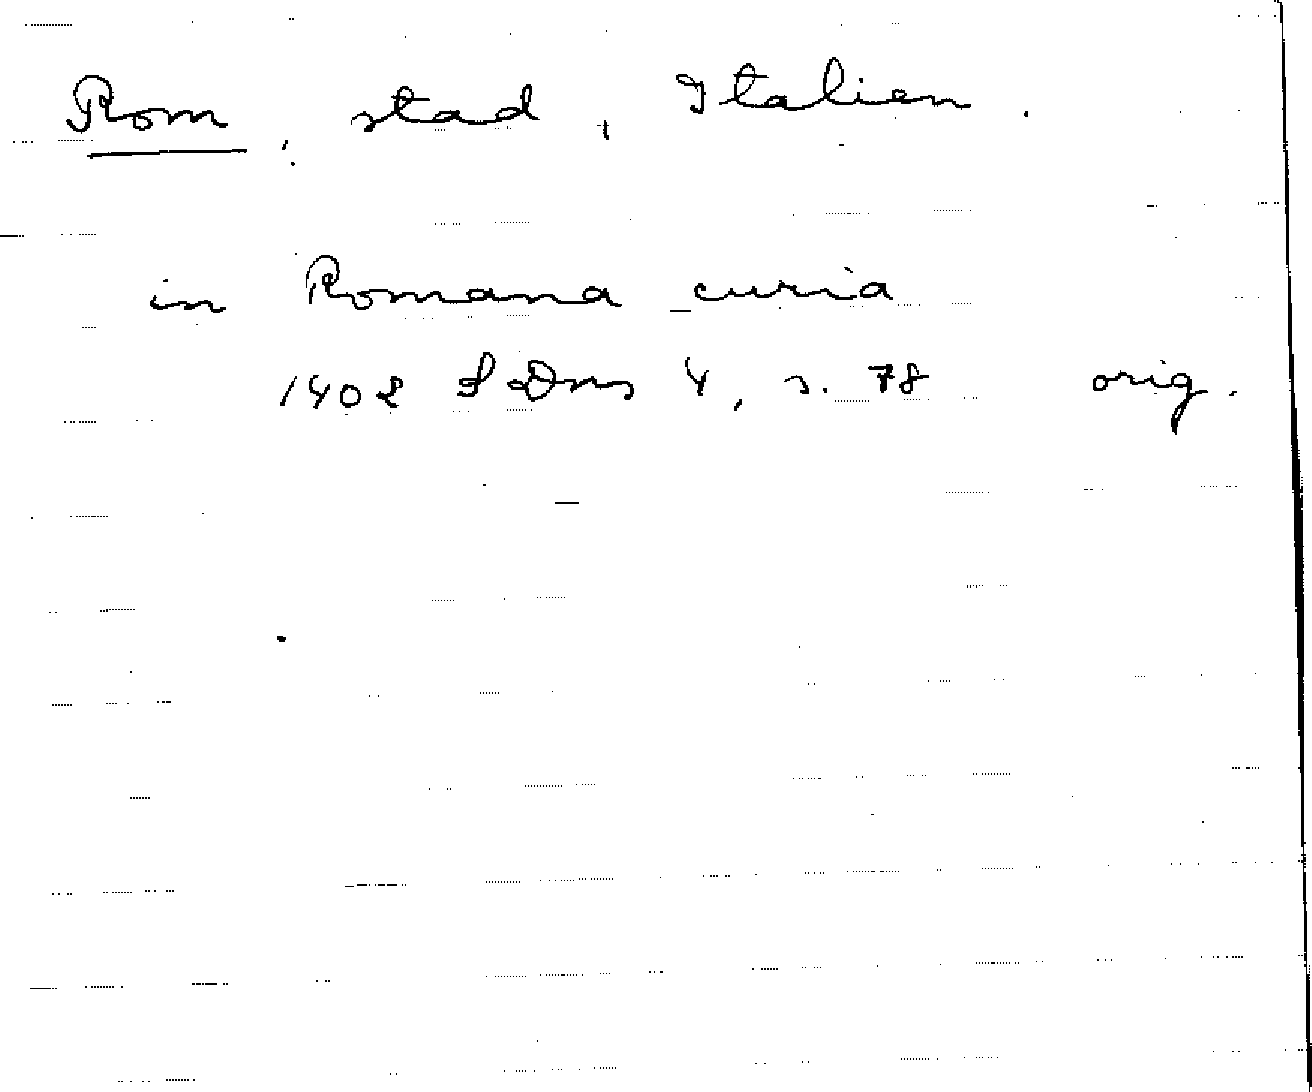 Rom, stad, Italien.
in Romana curia
1402 SDns 4, s. 78 orig.